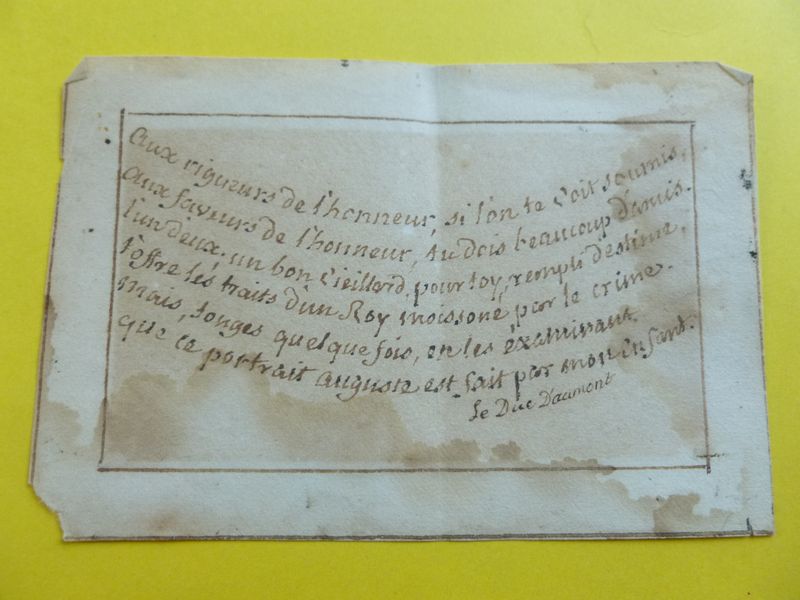 aux rigueurs de l'honneur, si l'on te voit soumis,
aux faveurs de l'honneur, tu dois beaucoup d'amis.
l'un deux, un bon vieillard, pour toy, rempli destime,
t'offre les traits d'un Roy moissoné par le crime.
mais, songes quelque fois, en les éxaminant
que ce portrait auguste est fait par mon Enfant.
le Duc D'aumont